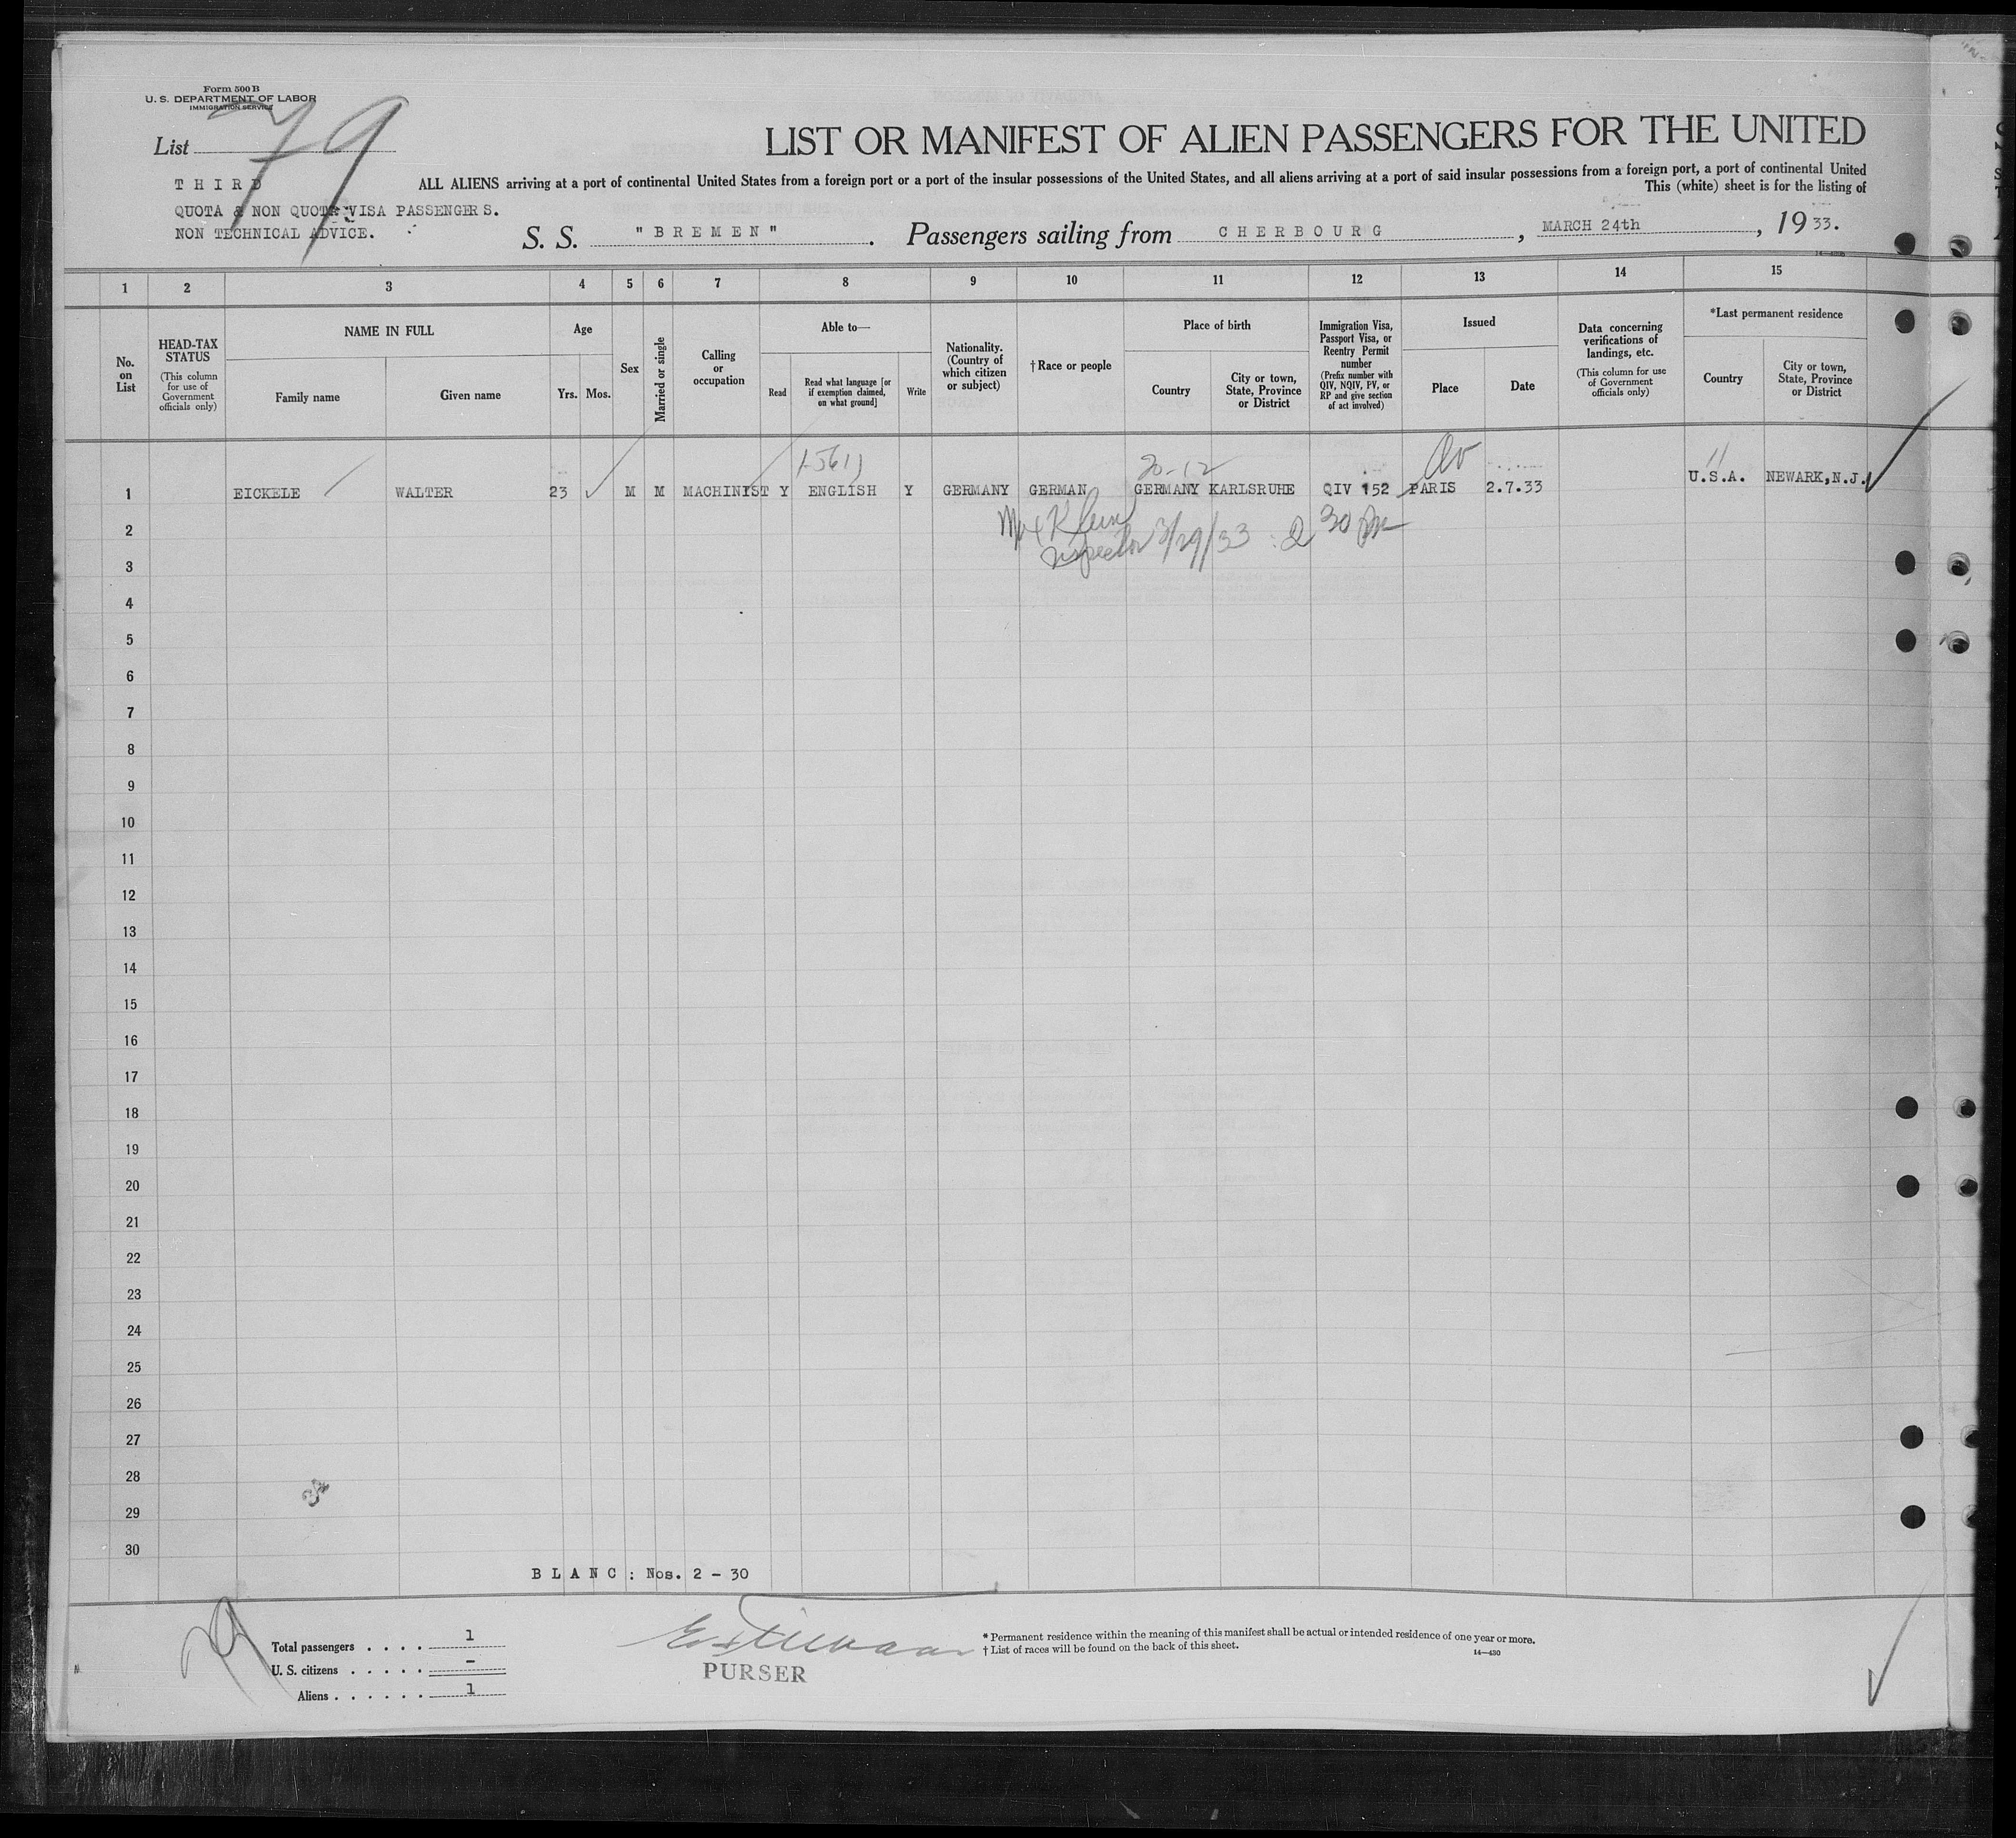 Form 500 B
U. S. DEPARTMENT OF LABOR
IMMIGRATION SERVICE
List 79
LIST OR MANIFEST OF ALIEN PASSENGERS FOR THE UNITED
THIRD
QUOTA & NON QUOTA VISA PASSENGERS.
NON TECHNICAL ADVICE.
ALL ALIENS arriving at a port of continental United States from a foreign port or a port of the insular possessions of the United States, and all aliens arriving at a port of said insular possessions from a foreign port, a port of continental United
This (white) sheet is for the listing of
S. S. "BREMEN". Passengers sailing from CHERBOURG, MARCH 24th, 1933.
1 2 3 4 5 6 7 8 9 10 11 12 13 14 15
No. on List
HEAD-TAX STATUS (This column for use of Government officials only)
NAME IN FULL
Family name
Given name
Age
Yrs. Mos.
Sex
Married or single
Calling or occupation
Able to—
Read
Read what language [or if exemption claimed, on what ground]
Write
Nationality. (Country of which citizen or subject)
† Race or people
Place of birth
Country
City or town, State, Province or District
Immigration Visa, Passport Visa, or Reentry Permit number (Prefix number with QIV, NQIV, PV, or RP and give section of act involved)
Issued
Place
Date
Data concerning verifications of landings, etc. (This column for use of Government officials only)
*Last permanent residence
Country
City or town, State, Province or District
20-12
1 EICKELE WALTER 23 M M MACHINIST Y ENGLISH Y GERMANY GERMAN GERMANY KARLSRUHE QIV 152 PARIS 2.7.33 U.S.A. NEWARK, N.J.
Max Klein
Inspector 3/29/33 2 30 pm
2
3
4
5
6
7
8
9
10
11
12
13
14
15
16
17
18
19
20
21
22
23
24
25
26
27
28
29
30
BLANC: Nos. 2 - 30
Total passengers . . . . 1
U. S. citizens . . . . . –
Aliens . . . . . . 1
PURSER
* Permanent residence within the meaning of this manifest shall be actual or intended residence of one year or more.
† List of races will be found on the back of this sheet.
14—430